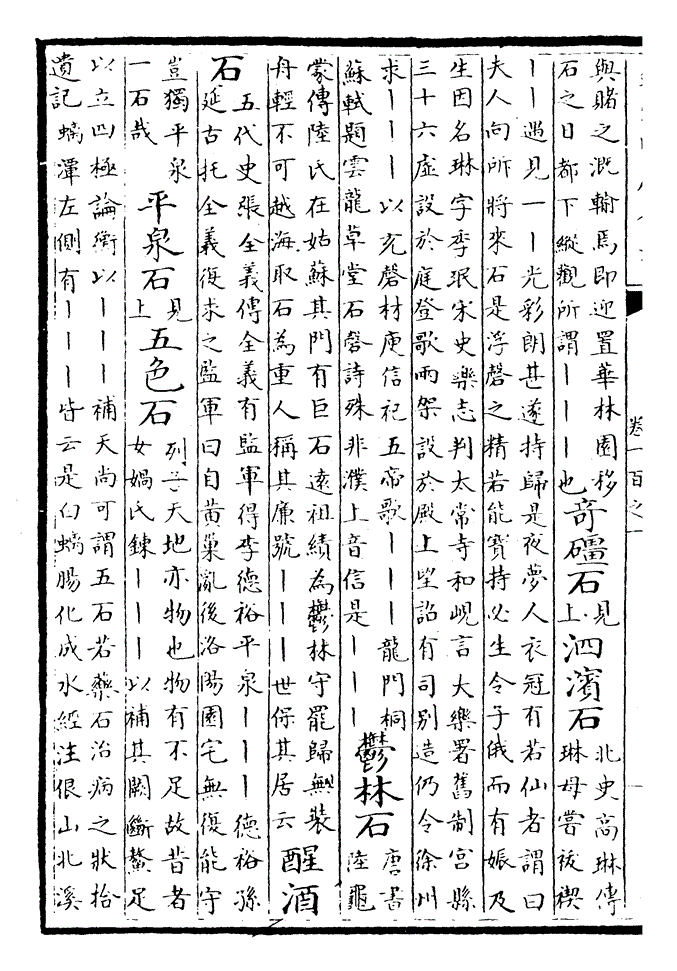 卷一百之一
與賭之溉輸焉即迎置華林園移
石之日都下縱觀所謂丨丨丨也
奇礓石
見
上
泗濱石
北史高琳傳
琳母嘗祓禊
丨丨遇見一丨丨光彩朗甚遂持歸是夜夢人衣冠有若仙者謂曰
夫人向所將來石是浮磬之精若能寶持必生令子俄而有娠及
生因名琳字季珉宋史樂志判太常寺和峴言大樂署舊制宮縣
三十六虡設於庭登歌兩架設於殿上望詔有司別造仍令徐州
求丨丨丨以充磬材庾信祀五帝歌丨丨丨龍門桐
蘇軾題雲龍草堂石磬詩殊非濮上音信是丨丨丨
鬱林石
唐書
陸龜
蒙傳陸氏在姑蘇其門有巨石遠祖績為鬱林守罷歸無裝
舟輕不可越海取石為重人稱其廉號丨丨丨世保其居云
醒酒
石
五代史張全義傳全義有監軍得李德裕平泉丨丨丨德裕孫
延古托全義復求之監軍曰自黃巢亂後洛陽園宅無復能守
豈獨平泉
一石哉
平泉石
見
上
五色石
列子天地亦物也物有不足故昔者
女媧氏鍊丨丨丨以補其闕斷鰲足
以立四極論衡以丨丨丨補天尚可謂五石若藥石治病之狀拾
遺記螭潭左側有丨丨丨皆云是白螭腸化成水經注佷山北溪